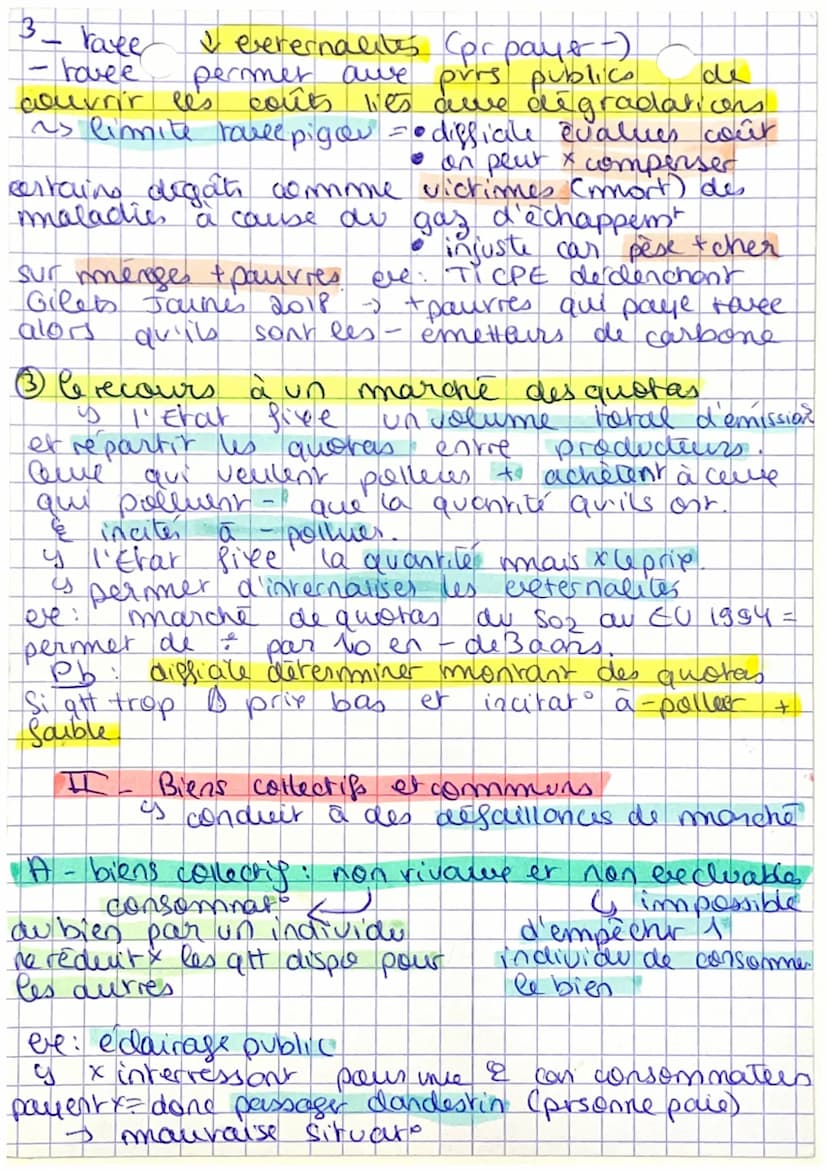 3 - taxe ↓ externalités (pr payer -)
- taxe permet aux pvrs publics de
couvrir les coûts liés aux dégradations
~> limite taxe pigou = • difficile évaluer coût
• on peut x compenser
certains dégâts comme victimes (mort) des
maladies à cause du gaz d'échappemt
• injuste car pèse + cher
sur ménages + pauvres ex: TICPE déclenchant
Gilets Jaunes 2018 -> + pauvres qui paye taxe
alors qu'ils sont les - émetteurs de carbone
③ le recours à un marché des quotas
↳ l'Etat fixe un volume total d'émission
et répartit les quotas entre producteurs.
Ceux qui veulent polluer + achètent à ceux
qui polluent - que la quantité qu'ils ont.
incités à - polluer.
↳ l'Etat fixe la quantité mais x le prix.
↳ permet d'internaliser les externalités
ex: marché de quotas du SO2 au EU 1994 =
permet de ÷ par 10 en - de 3 ans.
Pb: difficile déterminer montant des quotas
Si qtt trop ↑ prix bas et incitat° à - polluer +
faible
II - Biens collectifs et communs
↳ conduit à des défaillances de marché
A - biens collectif: non rivaux et non excluable
consommat° ↳ impossible
du bien par un individu d'empêcher 1
ne réduit x les qtt dispo pour individu de consommer
les autres le bien
ex: éclairage public
↳ x interressant pour une car consommateurs
payent x = donc passager clandestin (prsonne paie)
-> mauvaise situat°